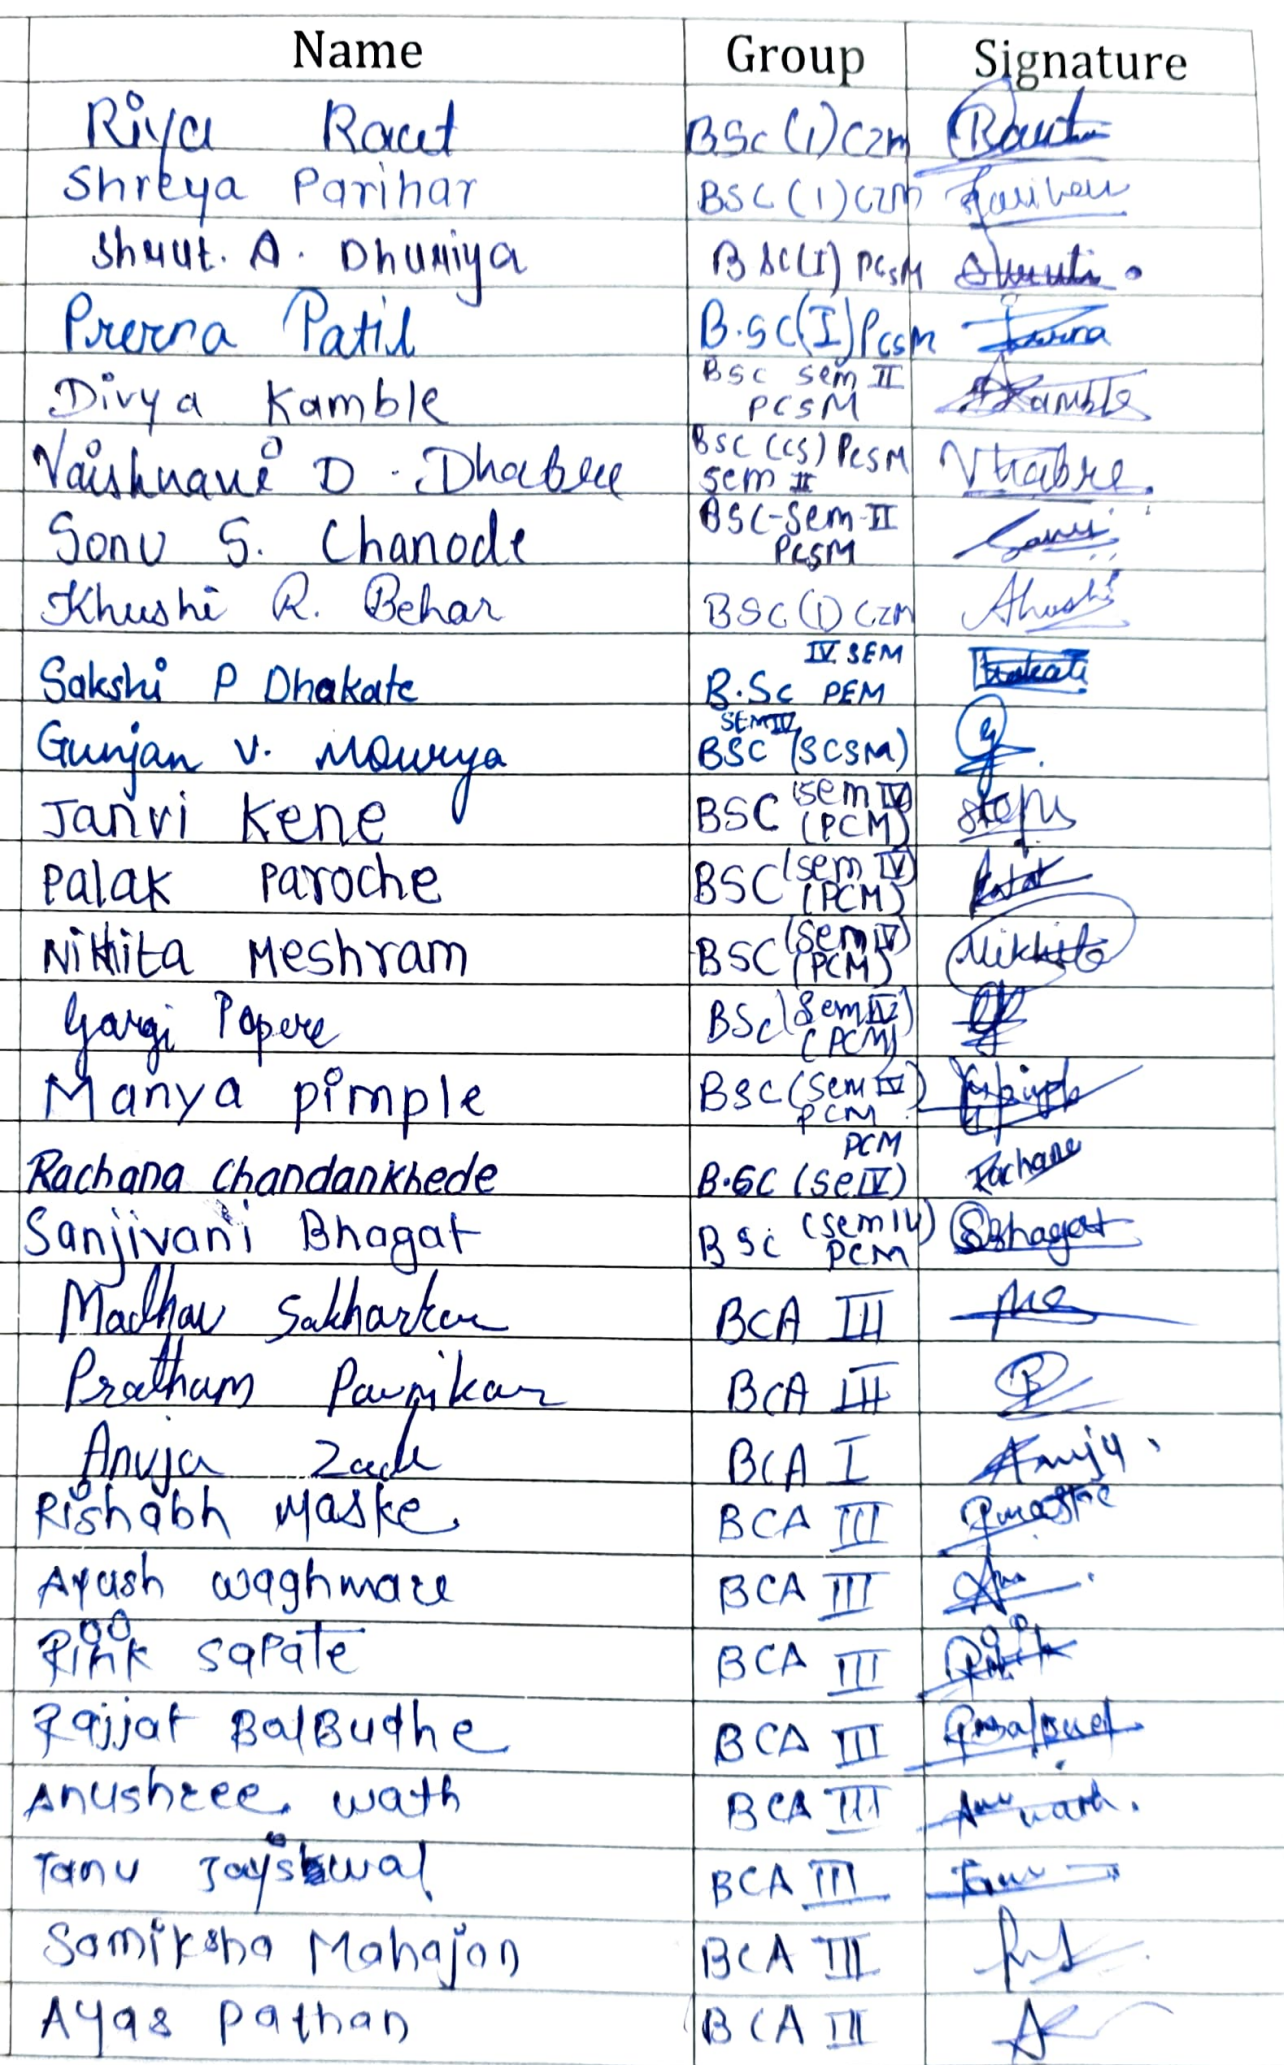 Name Group Signature
Riya Raut BSc (1) CZM Raut
Shreya Parihar BSC (1) CZM Parihar
Shruti. A. Dhuriya B SC(I) PCSM Shruti.
Prerna Patil B.SC(I) PCSM Prerna
Divya Kamble BSC sem II PCSM DKamble
Vaishnavi D. Dhabre BSC (CS) PCSM sem II VDhabre.
Sonu S. Chanode BSC-Sem-II PCSM Sonu
Khushi R. Behar BSC (1) CZM Khushi
Sakshi P Dhakate B.Sc IV SEM PEM Dhakate
Gunjan V. Mourya BSC SEM IV (SCSM)
Janvi Kene BSC (sem IV) (PCM)
Palak Paroche BSC (sem IV) (PCM) Palak
Nikhita Meshram BSC (sem IV) (PCM) Nikhita
Gargi Popere BSc (Sem IV) (PCM)
Manya pimple BSC (Sem IV) PCM
Rachana Chandankhede B.SC (Se IV) PCM Rachana
Sanjivani Bhagat BSc (sem IV) PCM SBhagat
Madhav Sakharkar BCA III
Pratham Pavnikar BCA III P
Anuja Zade BCA I Anuja
Rishabh Maske BCA III RMaske
Ayush waghmare BCA III
Rink Sapate BCA III
Rajjat BalBudhe BCA III
Anushree wath BCA III Anu wath.
Tanu Jayswal BCA III Tanu
Samiksha Mahajan BCA III
Ayas Pathan BCA III A